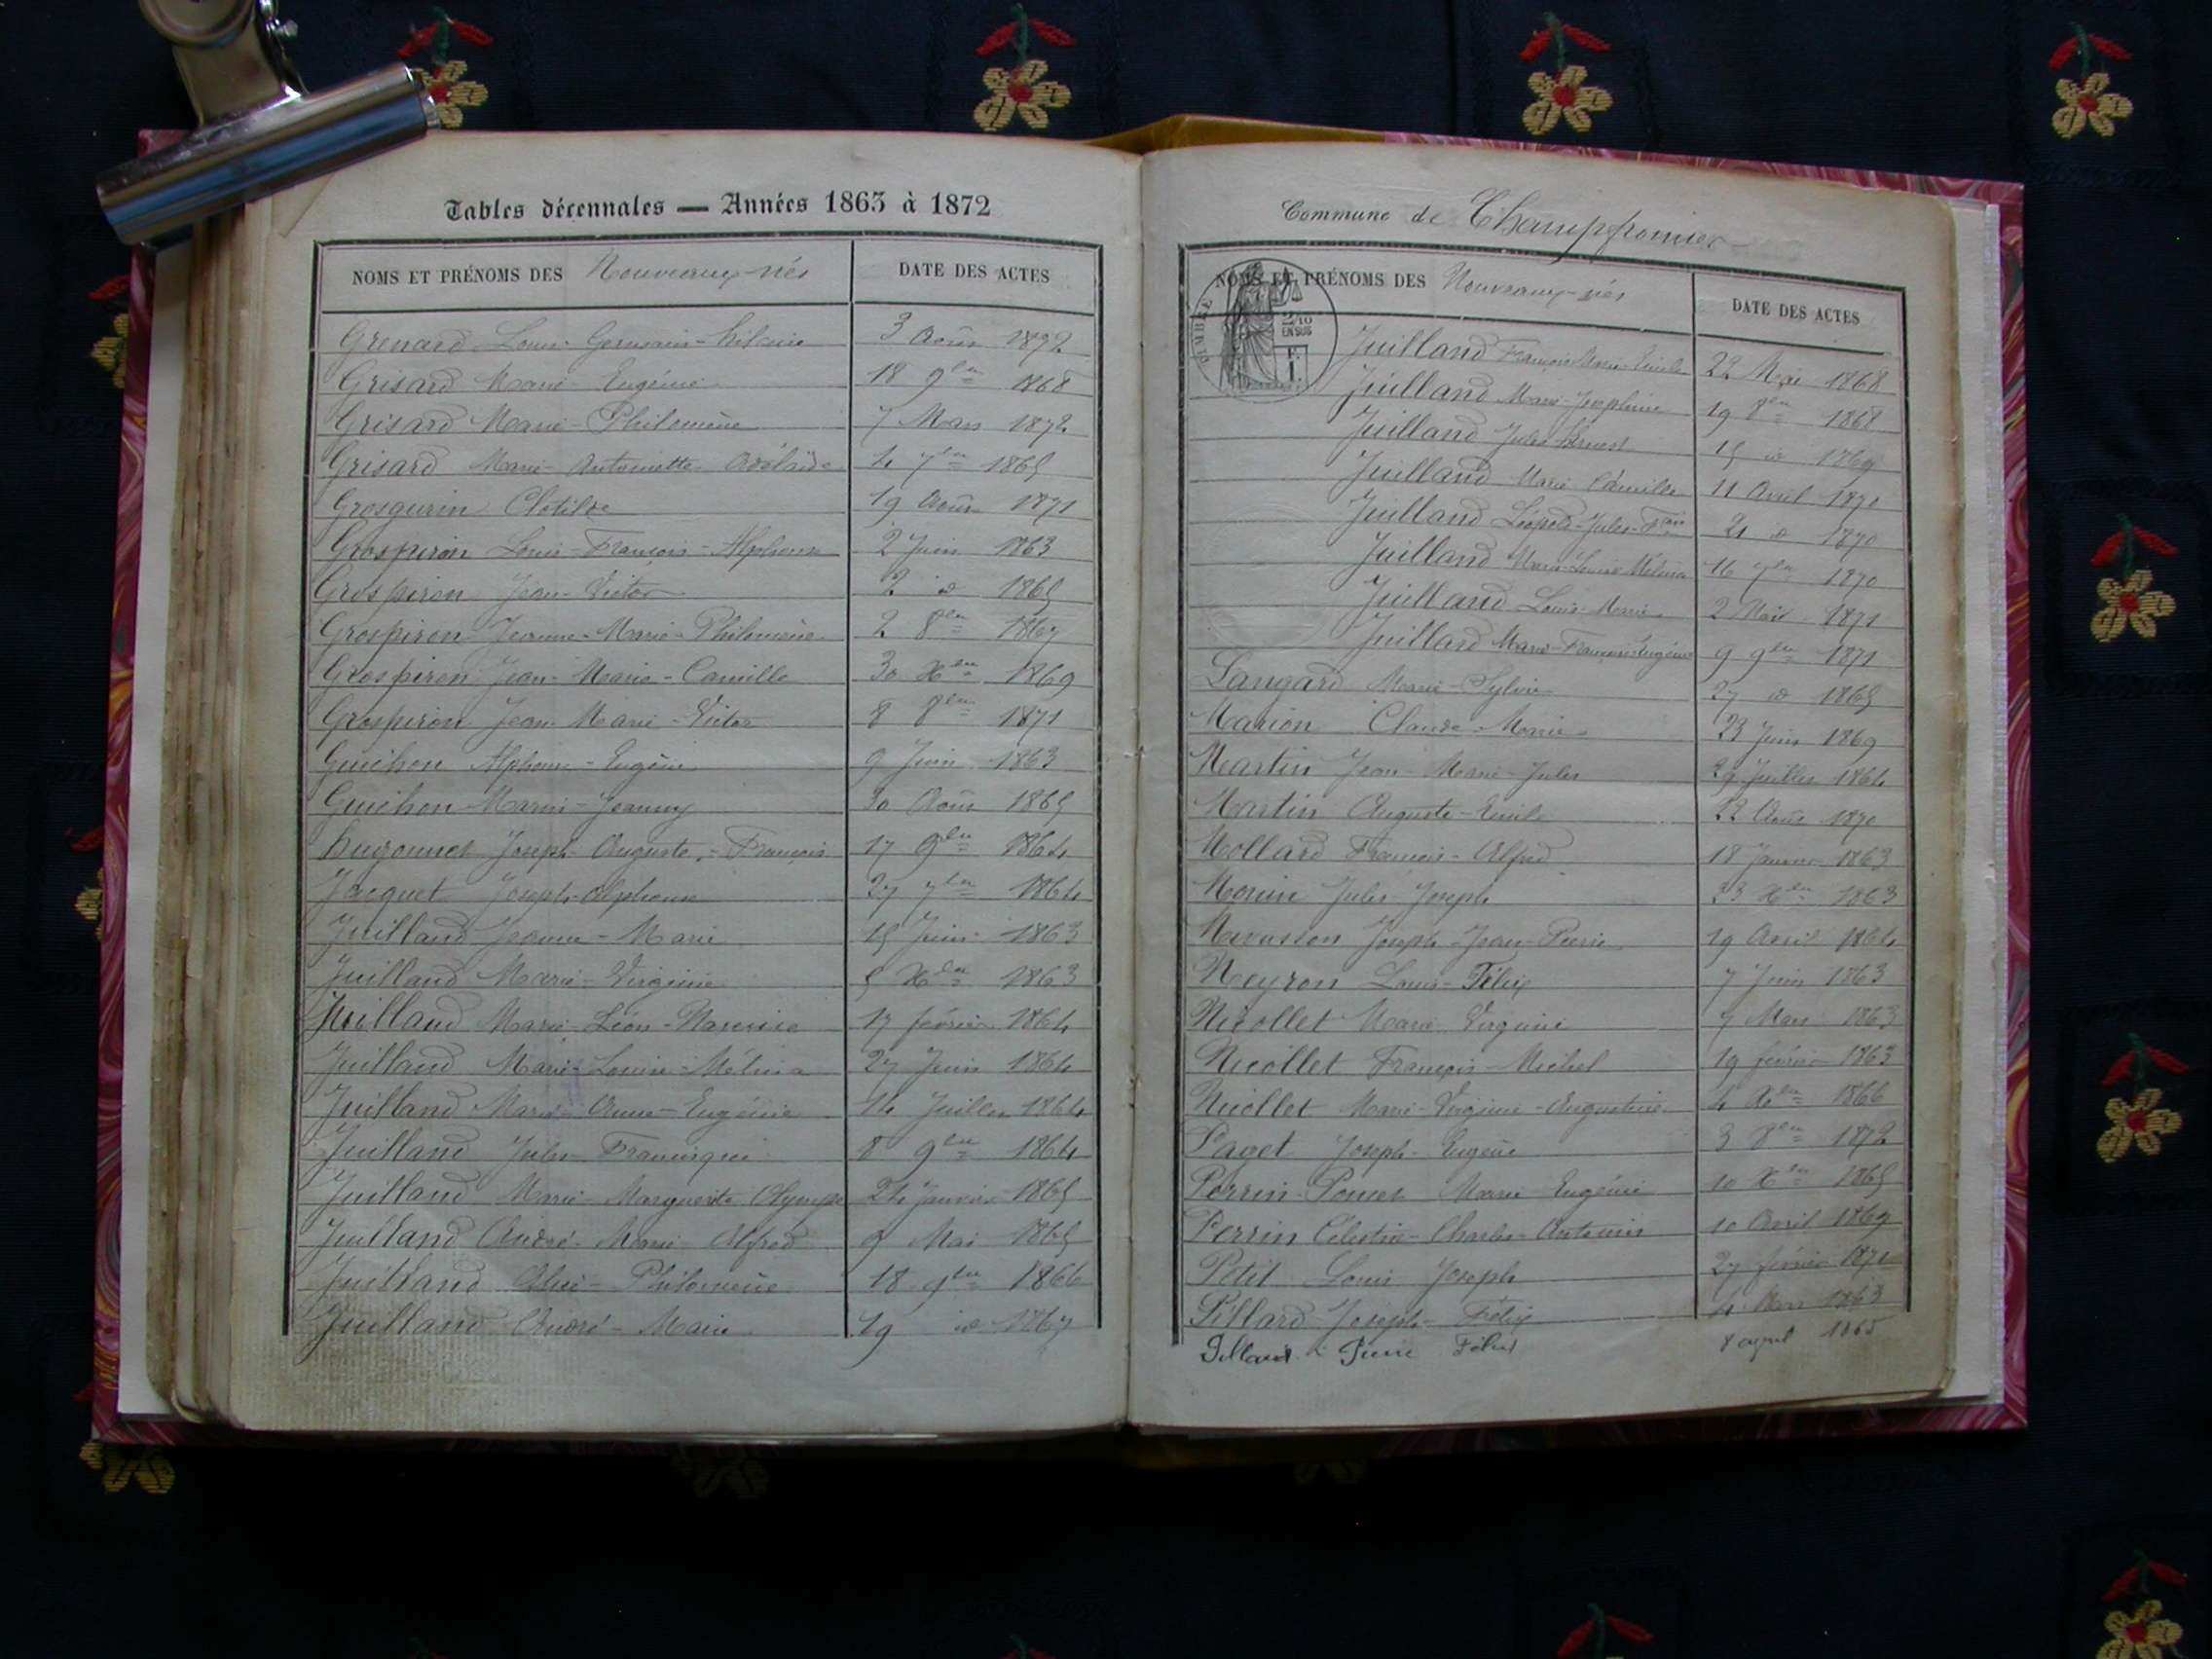 Tables décennales — Années 1863 à 1872
NOMS ET PRÉNOMS DES Nouveaux-nés DATE DES ACTES
Grenard Louis Germain-hilaire 3 Août 1872
Grisard Marie-Eugénie 18 9bre 1868
Grisard Marie-Philomène 7 Mars 1872
Grisard Marie-Antoinette 4 7bre 1865
Grosgurin Clotilde 19 Août 1871
Grospiron Louis-François-Alphonse 2 Juin 1863
Grospiron Jean-Victor 2 id 1865
Grospiron Jeanne-Marie-Philomène 2 8bre 1867
Grospiron Jean-Marie-Camille 30 Xbre 1869
Grospiron Jean Marie-Victor 8 8bre 1871
Guichon Alphonse-Eugène 9 Juin 1863
Guichon Marie-Jeanny 30 Août 1865
hugonnet Joseph-Auguste-François 17 9bre 1864
Jacquet Joseph-Alphonse 27 7bre 1864
Juilland Jeanne-Marie 15 Juin 1863
Juilland Marie-Virginie 5 Xbre 1863
Juilland Marie-Léon 17 février 1864
Juilland Marie-Louise-Mélina 27 Juin 1864
Juilland Marie-Anne-Eugénie 14 Juillet 1864
Juilland Jules 8 9bre 1864
Juilland Marie-Marguerite Olympe 24 Janvier 1865
Juilland André-Marie-Alfred 9 Mai 1865
Juilland Philomène 18 9bre 1866
Juilland André-Marie 19 id 1867
Commune de Champfromier
NOMS ET PRÉNOMS DES Nouveaux-nés DATE DES ACTES
2/10 EN SUS
Juilland François Marie Emile 22 Mai 1868
Juilland Marie-Joséphine 19 8bre 1868
Juilland Jules-Ernest 15 id 1869
Juilland Marie Camille 11 Avril 1870
Juilland Léopold-Jules-Fçois 21 id 1870
Juilland Marie-Louise Mélina 16 7bre 1870
Juilland Louis-Marie 2 1871
Juilland Marie-Eugénie 9 9bre 1871
Langard Marie-Sylvie 27 id 1865
Marion Claude-Marie 23 Juin 1869
Martin Jean-Marie-Jules 29 Juillet 1864
Martin Auguste-Emile 22 Août 1870
Mollard François-Alfred 18 Janvier 1863
Jules Joseph 23 Xbre 1863
Joseph-Jean-Pierre 19 Avril 1864
Neyron Louis-Félix 7 Juin 1863
Nicollet Marie Virginie 7 Mars 1863
Nicollet François-Michel 19 février 1863
Nicollet Marie-Virginie-Augustine 4 Xbre 1866
Paget Joseph-Eugène 3 8bre 1872
Perrin Marie Eugénie 10 Xbre 1865
Perrin Célestin-Charles-Antonin 10 Avril 1869
Petit Louis Joseph 27 février 1871
Pillard Joseph-Félix 4 1863
Pillard Pierre Félix 8 1865